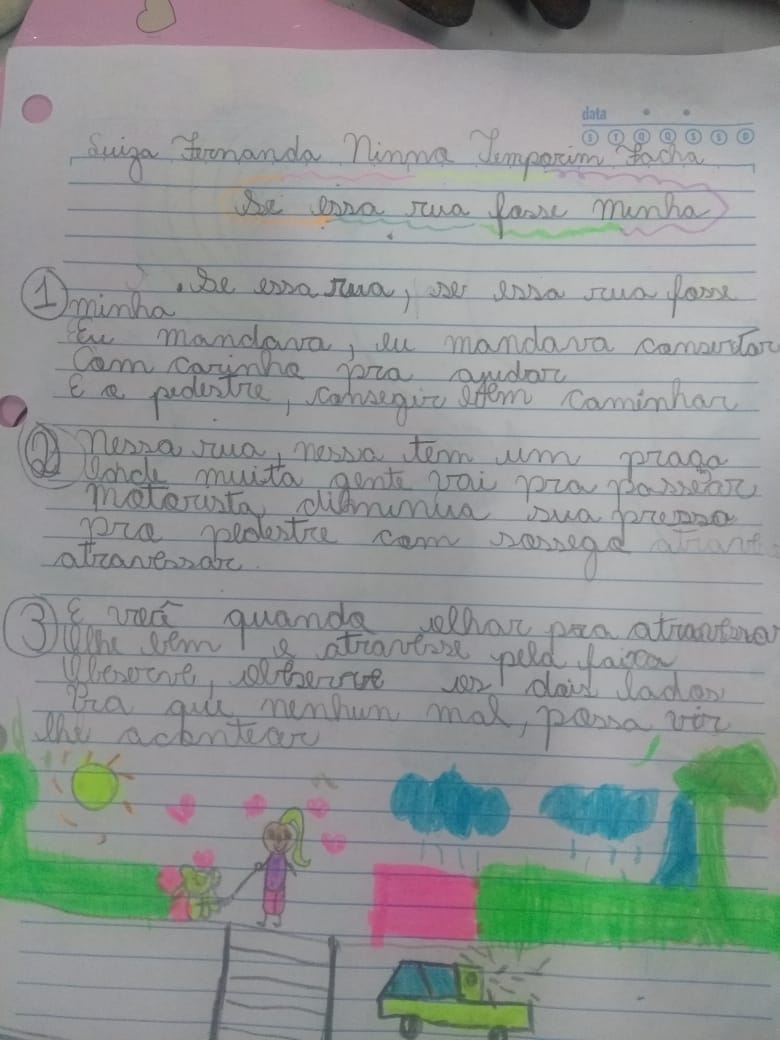 data
S T Q Q S S D
Luiza Fernanda Ninma Temporim Facha
Se essa rua fosse minha
1 Se essa rua, se essa rua fosse
minha
Eu mandava, eu mandava consertar
Com carinho pra ajudar
E o pedestre, conseguir bem caminhar
2 Nessa rua, nessa tem um praça
Onde muita gente vai pra passear
Motorista, diminua sua pressa
pra pedestre com sossego
atravessar.
3 E você quando olhar pra atravessar
Olhe bem e atravesse pela faixa
Observe, observe os dois lados
Pra que nenhun mal, possa vir
lhe acontecer